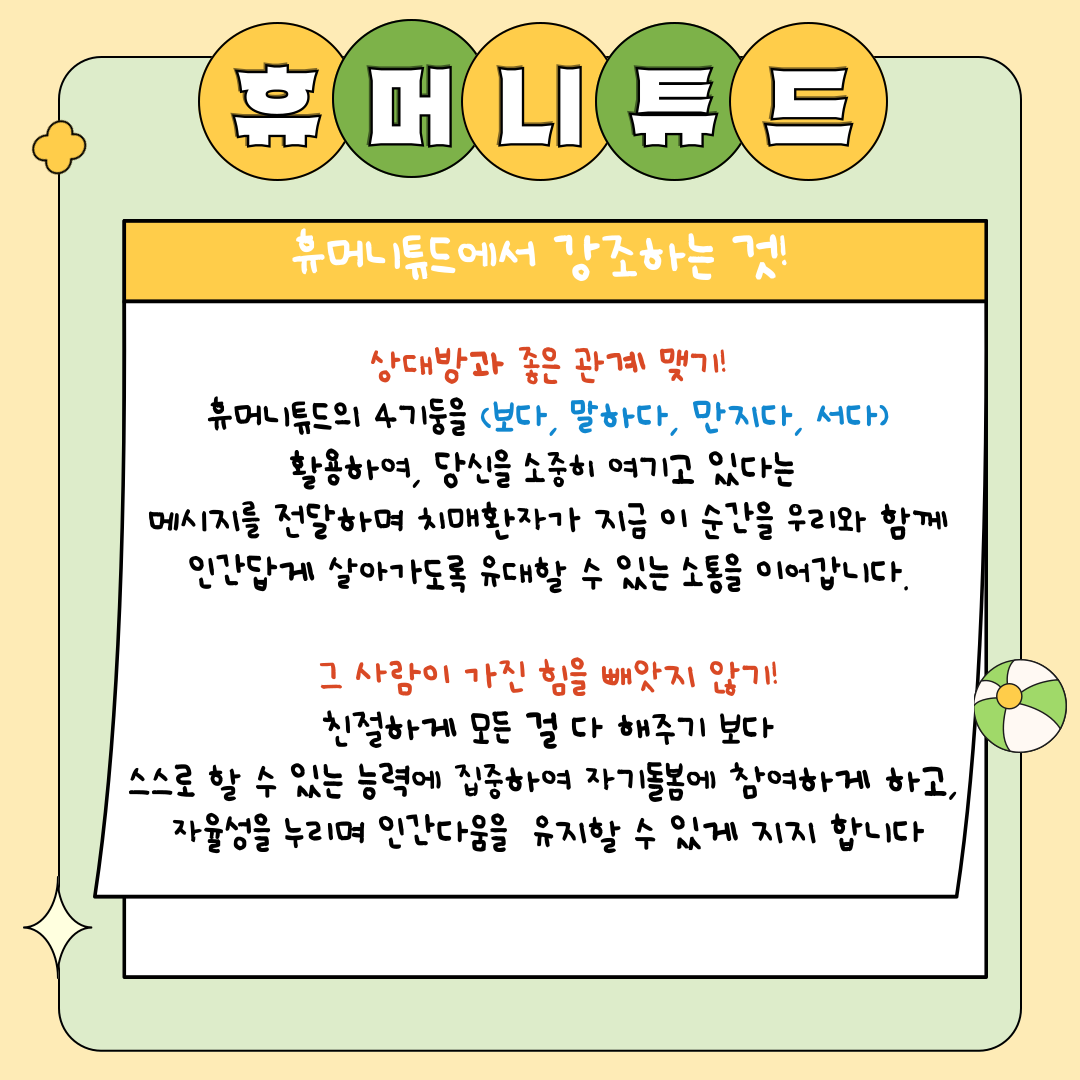 휴머니튜드
휴머니튜드에서 강조하는 것!
상대방과 좋은 관계 맺기!
휴머니튜드의 4기둥을 (보다, 말하다, 만지다, 서다)
활용하여, 당신을 소중히 여기고 있다는
메시지를 전달하며 치매환자가 지금 이 순간을 우리와 함께
인간답게 살아가도록 유대할 수 있는 소통을 이어갑니다.
그 사람이 가진 힘을 빼앗지 않기!
친절하게 모든 걸 다 해주기 보다
스스로 할 수 있는 능력에 집중하여 자기돌봄에 참여하게 하고,
자율성을 누리며 인간다움을 유지할 수 있게 지지 합니다